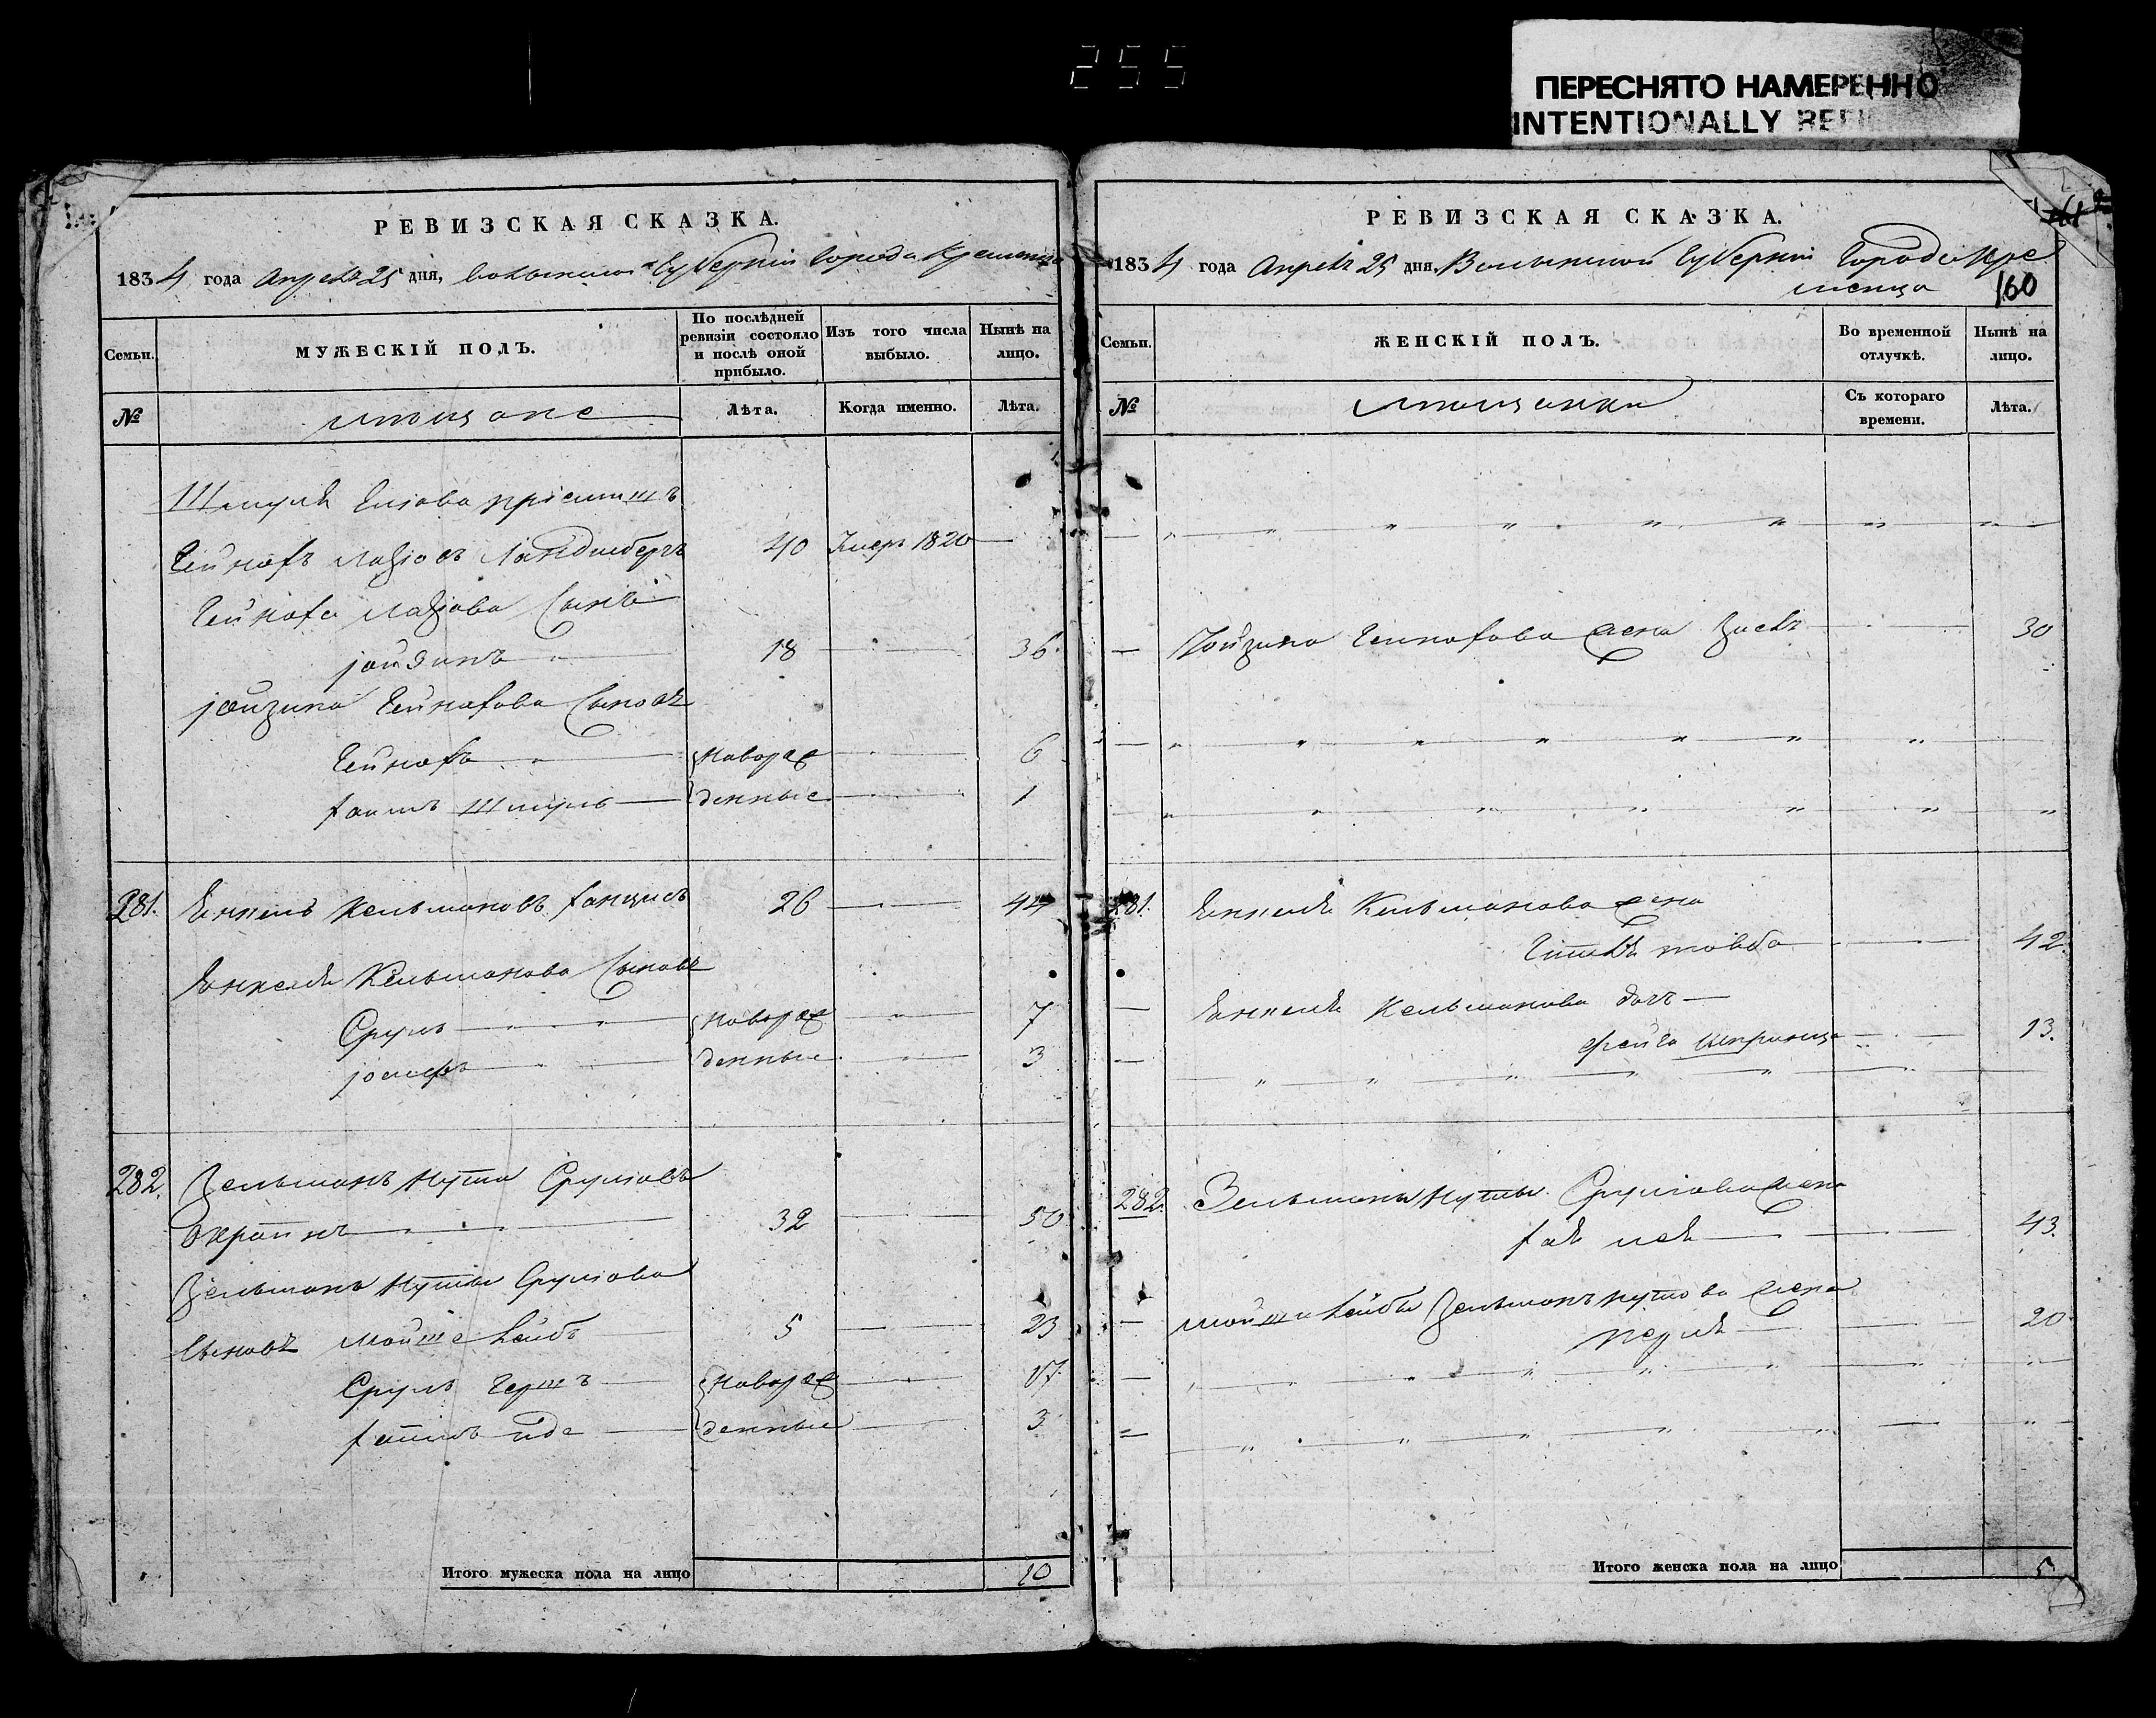 255
ПЕРЕСНЯТО НАМЕРЕННО
INTENTIONALLY
РЕВИЗСКАЯ СКАЗКА.
1834 года Апреля 25 дня, Волынской Губернии Города Кременца
Семьи.
МУЖЕСКІЙ ПОЛЪ.
По послѣдней ревизіи состояло и послѣ оной прибыло.
Изъ того числа выбыло.
Нынѣ на лицо.
№
мещане
Лѣта.
Когда именно.
Лѣта.
Шмуля
Гейнахъ 40 Умеръ 1820
Гейнаха сынъ
18 36
Гейнахова сыновья
Гейнахъ новорож 6
Шмуль денные 1
281. Янкель Кельмановъ 26 44
Янкеля Кельманова сыновья
Сруль новорож 7
Іосифъ денные 3
282. Зельманъ Нута Сруліовъ
32 50
Зельмана Нуты Сруліова
сыновья Мойше Лейбъ 5 23
Сруль Гершъ новорож 17
денные 3
Итого мужеска пола на лицо 10
РЕВИЗСКАЯ СКАЗКА.
161
1834 года Апреля 25 дня Волынской Губерніи Города Кре
менца
160
Семьи.
ЖЕНСКІЙ ПОЛЪ.
Во временной отлучкѣ.
Нынѣ на лицо.
№
мещанки
Съ котораго времени.
Лѣта.
Гейнахова жена 30
281. Янкеля Кельманова жена
товба 42
Янкеля Кельманова дочь
Фейга Шпринца 13.
282. Зельмана Нуты Сруліова жена
43.
Мойше Лейбы Зельманъ Нутова жена
Перля 20
Итого женска пола на лицо 5